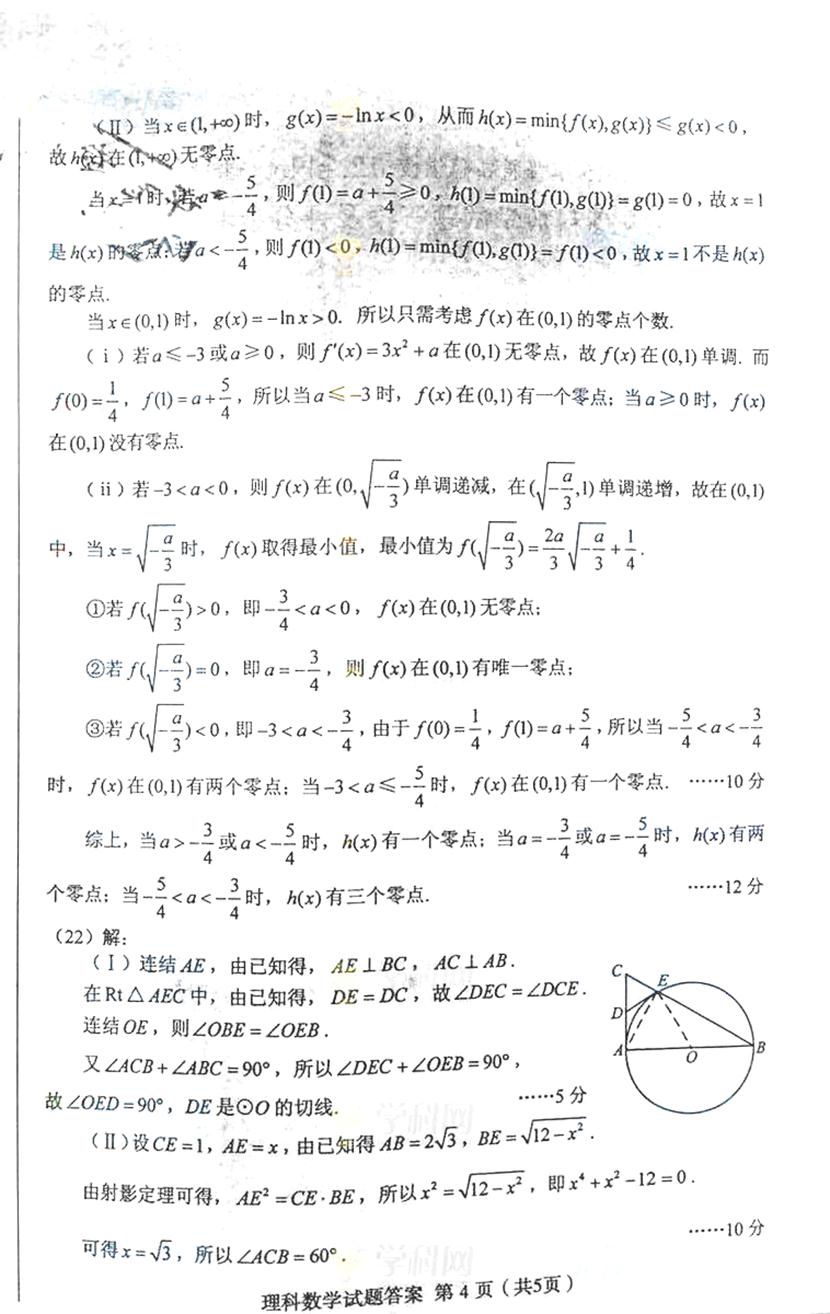 (Ⅱ)当x∈(1,+∞)时, g(x)=−ln x<0, 从而h(x)=min{f(x),g(x)}≤g(x)<0,
故h(x)在(1,+∞)无零点.
当x=1时,若a≥−5/4,则f(1)=a+5/4≥0, h(1)=min{f(1),g(1)}=g(1)=0,故x=1
是h(x)的零点;若a<−5/4,则f(1)<0, h(1)=min{f(1),g(1)}=f(1)<0,故x=1不是h(x)
的零点.
当x∈(0,1)时, g(x)=−ln x>0. 所以只需考虑f(x)在(0,1)的零点个数.
(ⅰ)若a≤−3或a≥0,则f′(x)=3x²+a在(0,1)无零点,故f(x)在(0,1)单调. 而
f(0)=1/4, f(1)=a+5/4,所以当a≤−3时, f(x)在(0,1)有一个零点;当a≥0时, f(x)
在(0,1)没有零点.
(ⅱ)若−3<a<0,则f(x)在(0,√(−a/3))单调递减,在(√(−a/3),1)单调递增,故在(0,1)
中,当x=√(−a/3)时, f(x)取得最小值,最小值为f(√(−a/3))=2a/3√(−a/3)+1/4.
①若f(√(−a/3))>0, 即−3/4<a<0, f(x)在(0,1)无零点;
②若f(√(−a/3))=0, 即a=−3/4, 则f(x)在(0,1)有唯一零点;
③若f(√(−a/3))<0,即−3<a<−3/4,由于f(0)=1/4, f(1)=a+5/4,所以当−5/4<a<−3/4
时, f(x)在(0,1)有两个零点;当−3<a≤−5/4时, f(x)在(0,1)有一个零点. ……10分
综上,当a>−3/4或a<−5/4时, h(x)有一个零点;当a=−3/4或a=−5/4时, h(x)有两
个零点;当−5/4<a<−3/4时, h(x)有三个零点. ……12分
(22)解:
(Ⅰ)连结AE, 由已知得, AE⊥BC, AC⊥AB.
在Rt△AEC中,由已知得, DE=DC,故∠DEC=∠DCE.
连结OE,则∠OBE=∠OEB.
又∠ACB+∠ABC=90°,所以∠DEC+∠OEB=90°,
故∠OED=90°, DE是⊙O的切线. ……5分
C
E
D
A
O
B
(Ⅱ)设CE=1, AE=x,由已知得AB=2√3, BE=√(12−x²).
由射影定理可得, AE²=CE·BE, 所以x²=√(12−x²), 即x⁴+x²−12=0.
可得x=√3,所以∠ACB=60°. ……10分
学科网
学科网
理科数学试题答案 第4页(共5页)